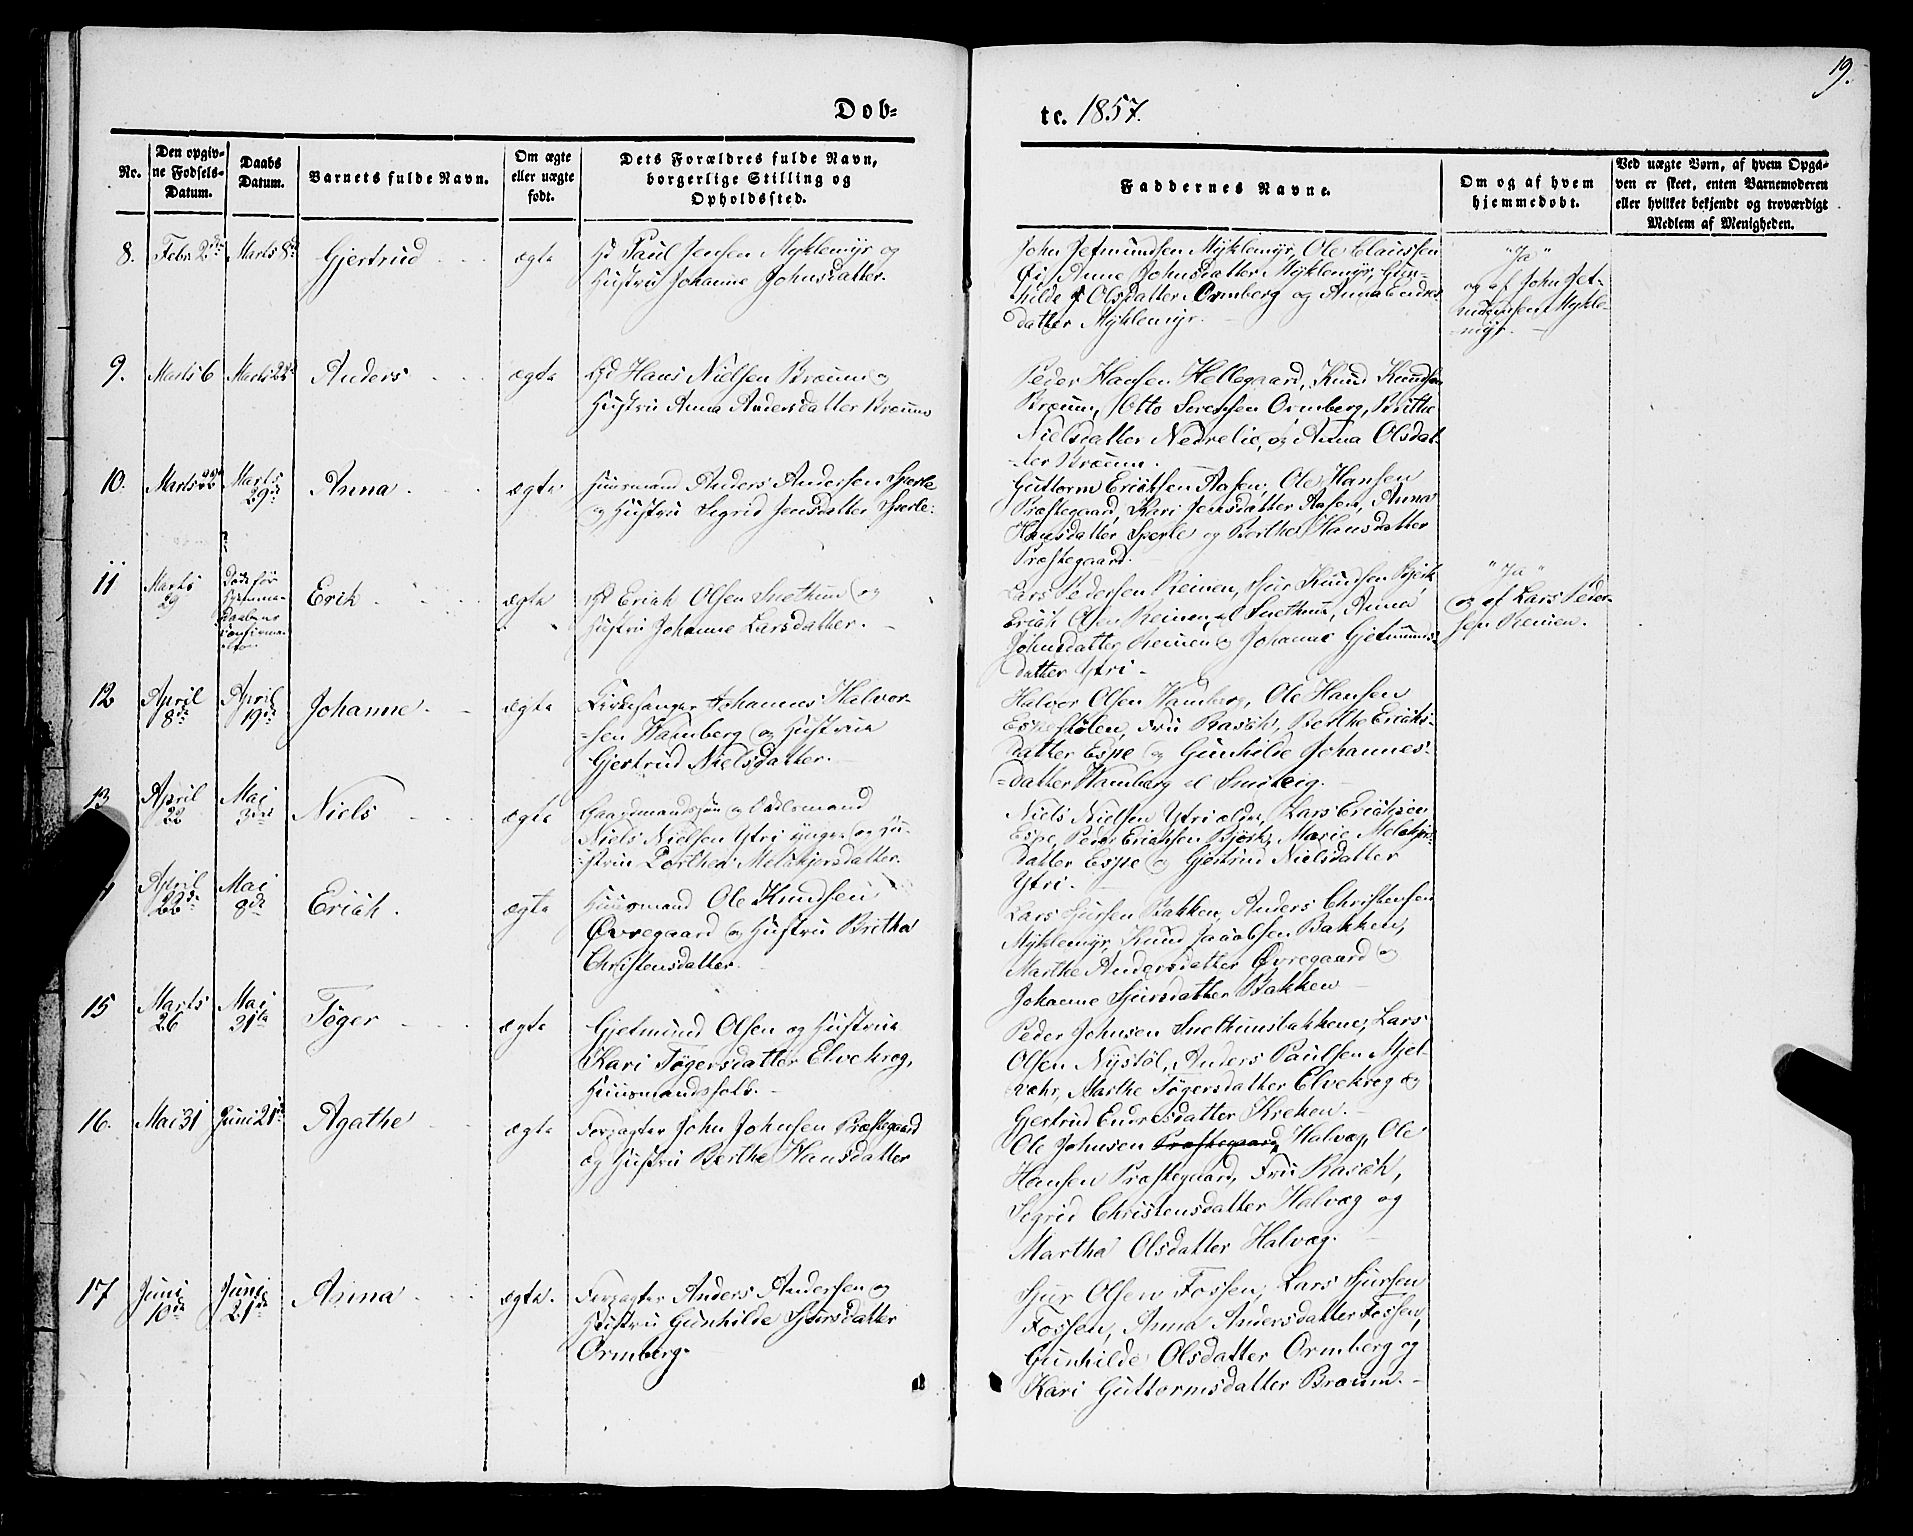 19.
Døb-
te. 1857.
Nr.
Den opgiv-
ne Fødsels-
Datum.
Daabs
Datum.
Barnets fulde Navn.
Om ægte
eller uægte
født.
Dets Forældres fulde Navn,
borgerlige Stilling og
Opholdssted.
Faddernes Navne.
Om og af hvem
hjemmedøbt.
Ved uægte Børn, af hvem Opga-
ven er skeet, enten Barnemoderen
eller hvilket bekjendt og troværdigt
Medlem af Menigheden.
8. Febr. 2den Marts 8de Gjertrud ægte
Gd Paul Jensen Myklemyr og
Hustru Johanne Johnsdatter.
John Jetmundsen Myklemyr, Ole Claussen
Øi, Anne Johnsdatter Myklemyr, Gun-
hilde Olsdatter Ormberg og Anna Endres
datter Myklemyr.
"Ja"
og af John Jet-
mundsen Mykle-
myr.
9. Marts 6 Marts 22 Anders ægte
Gd Hans Nielsen Bræum og
Hustru Anna Andersdatter Bræum
Peder Hansen Hellegaard, Knud Knudsen
Bræum, Otto Sørensen Ormberg, Brithe
Nielsdatter Nedrelie, og Anna Olsdat-
ter Bræum.
10. Marts 22 Marts 29de Anna ægte
Huusmand Anders Andersen Sperle
og Hustru Sigrid Jensdatter Sperle.
Guttorm Erichsen Aasen, Ole Hansen
Præstegaard, Kari Jensdatter Aasen, Anna
Hansdatter Sperle og Berthe Hansdatter
Præstegaard.
11 Marts 29
Døde før
Hjemme-
Daaben
Erik ægte
Gd Erich Olsen Snethun og
Hustru Johanne Larsdatter.
Lars Pedersen Reinen, Sjur Knudsen Bjørk
Erich Olsen Reinen el Snethun, Anna
Johnsdatter Reinen og Johanne Gjetmunds-
datter Ytri.
"Ja"
og af Lars Peder-
sen Reinen.
12 April 8de April 19de Johanne ægte
Kirkesanger Johannes Halvor-
sen Hamberg og Hustru
Gjertrud Nielsdatter.
Halvor Olsen Hamberg, Ole Hansen
Espestølen, Fru Rasch, Berthe Erichs-
datter Espe og Gunhilde Johannes-
datter Hamberg el
13 April 22 Mai 3die Niels ægte
Gaardmandssøn og
Niels Nielsen Ytri yngre og Hu-
stru Dorthea Melchjorsdatter.
Niels Nielsen Ytri ældre, Lars Erichsen
Espe, Peder Erichsen Bjørk, Marie Melchjors-
datter Espe og Gjertrud Nielsdatter
Ytri.
April 22de Mai 8de Erich. ægte
Huusmand Ole Knudsen
Øvregaard og Hustru Brithe
Christensdatter.
Lars Sjursen Bakken, Anders Christensen
Myklemyr, Knud Jacobsen Bakken,
Marthe Andersdatter Øvregaard og
Johanne Sjursdatter Bakken
15 Marts 26 Mai 21de Tøger ægte
Gjetmund Olsen og Hustru
Kari Tøgersdatter Elvekrog,
Huusmandsfolk.
Peder Johnsen Snethunsbakkene, Lars
Olsen Nystøl, Anders Paulsen Mjel-
vehr, Marthe Tøgersdatter Elvekrog og
Gjertrud Endresdatter Kreken.
16. Mai 31 Juni 21de Agathe ægte
Forpagter John Johnsen Præstegaard
og Hustru Berthe Hansdatter
Ole Johnsen Præstegaard, Halvæg, Ole
Hansen Præstegaard, Fru Rasch,
Sigrid Christensdatter Halvæg og
Martha Olsdatter Halvæg.
17 Juni 10de Juni 21de Anna ægte.
Forpagter Anders Andersen og
Hustru Gunhilde Sjursdatter
Ormberg.
Sjur Olsen Fossen, Lars Sjursen
Fossen, Anna Andersdatter Fossen,
Gunhilde Olsdatter Ormberg og
Kari Guttormsdatter Bræum.